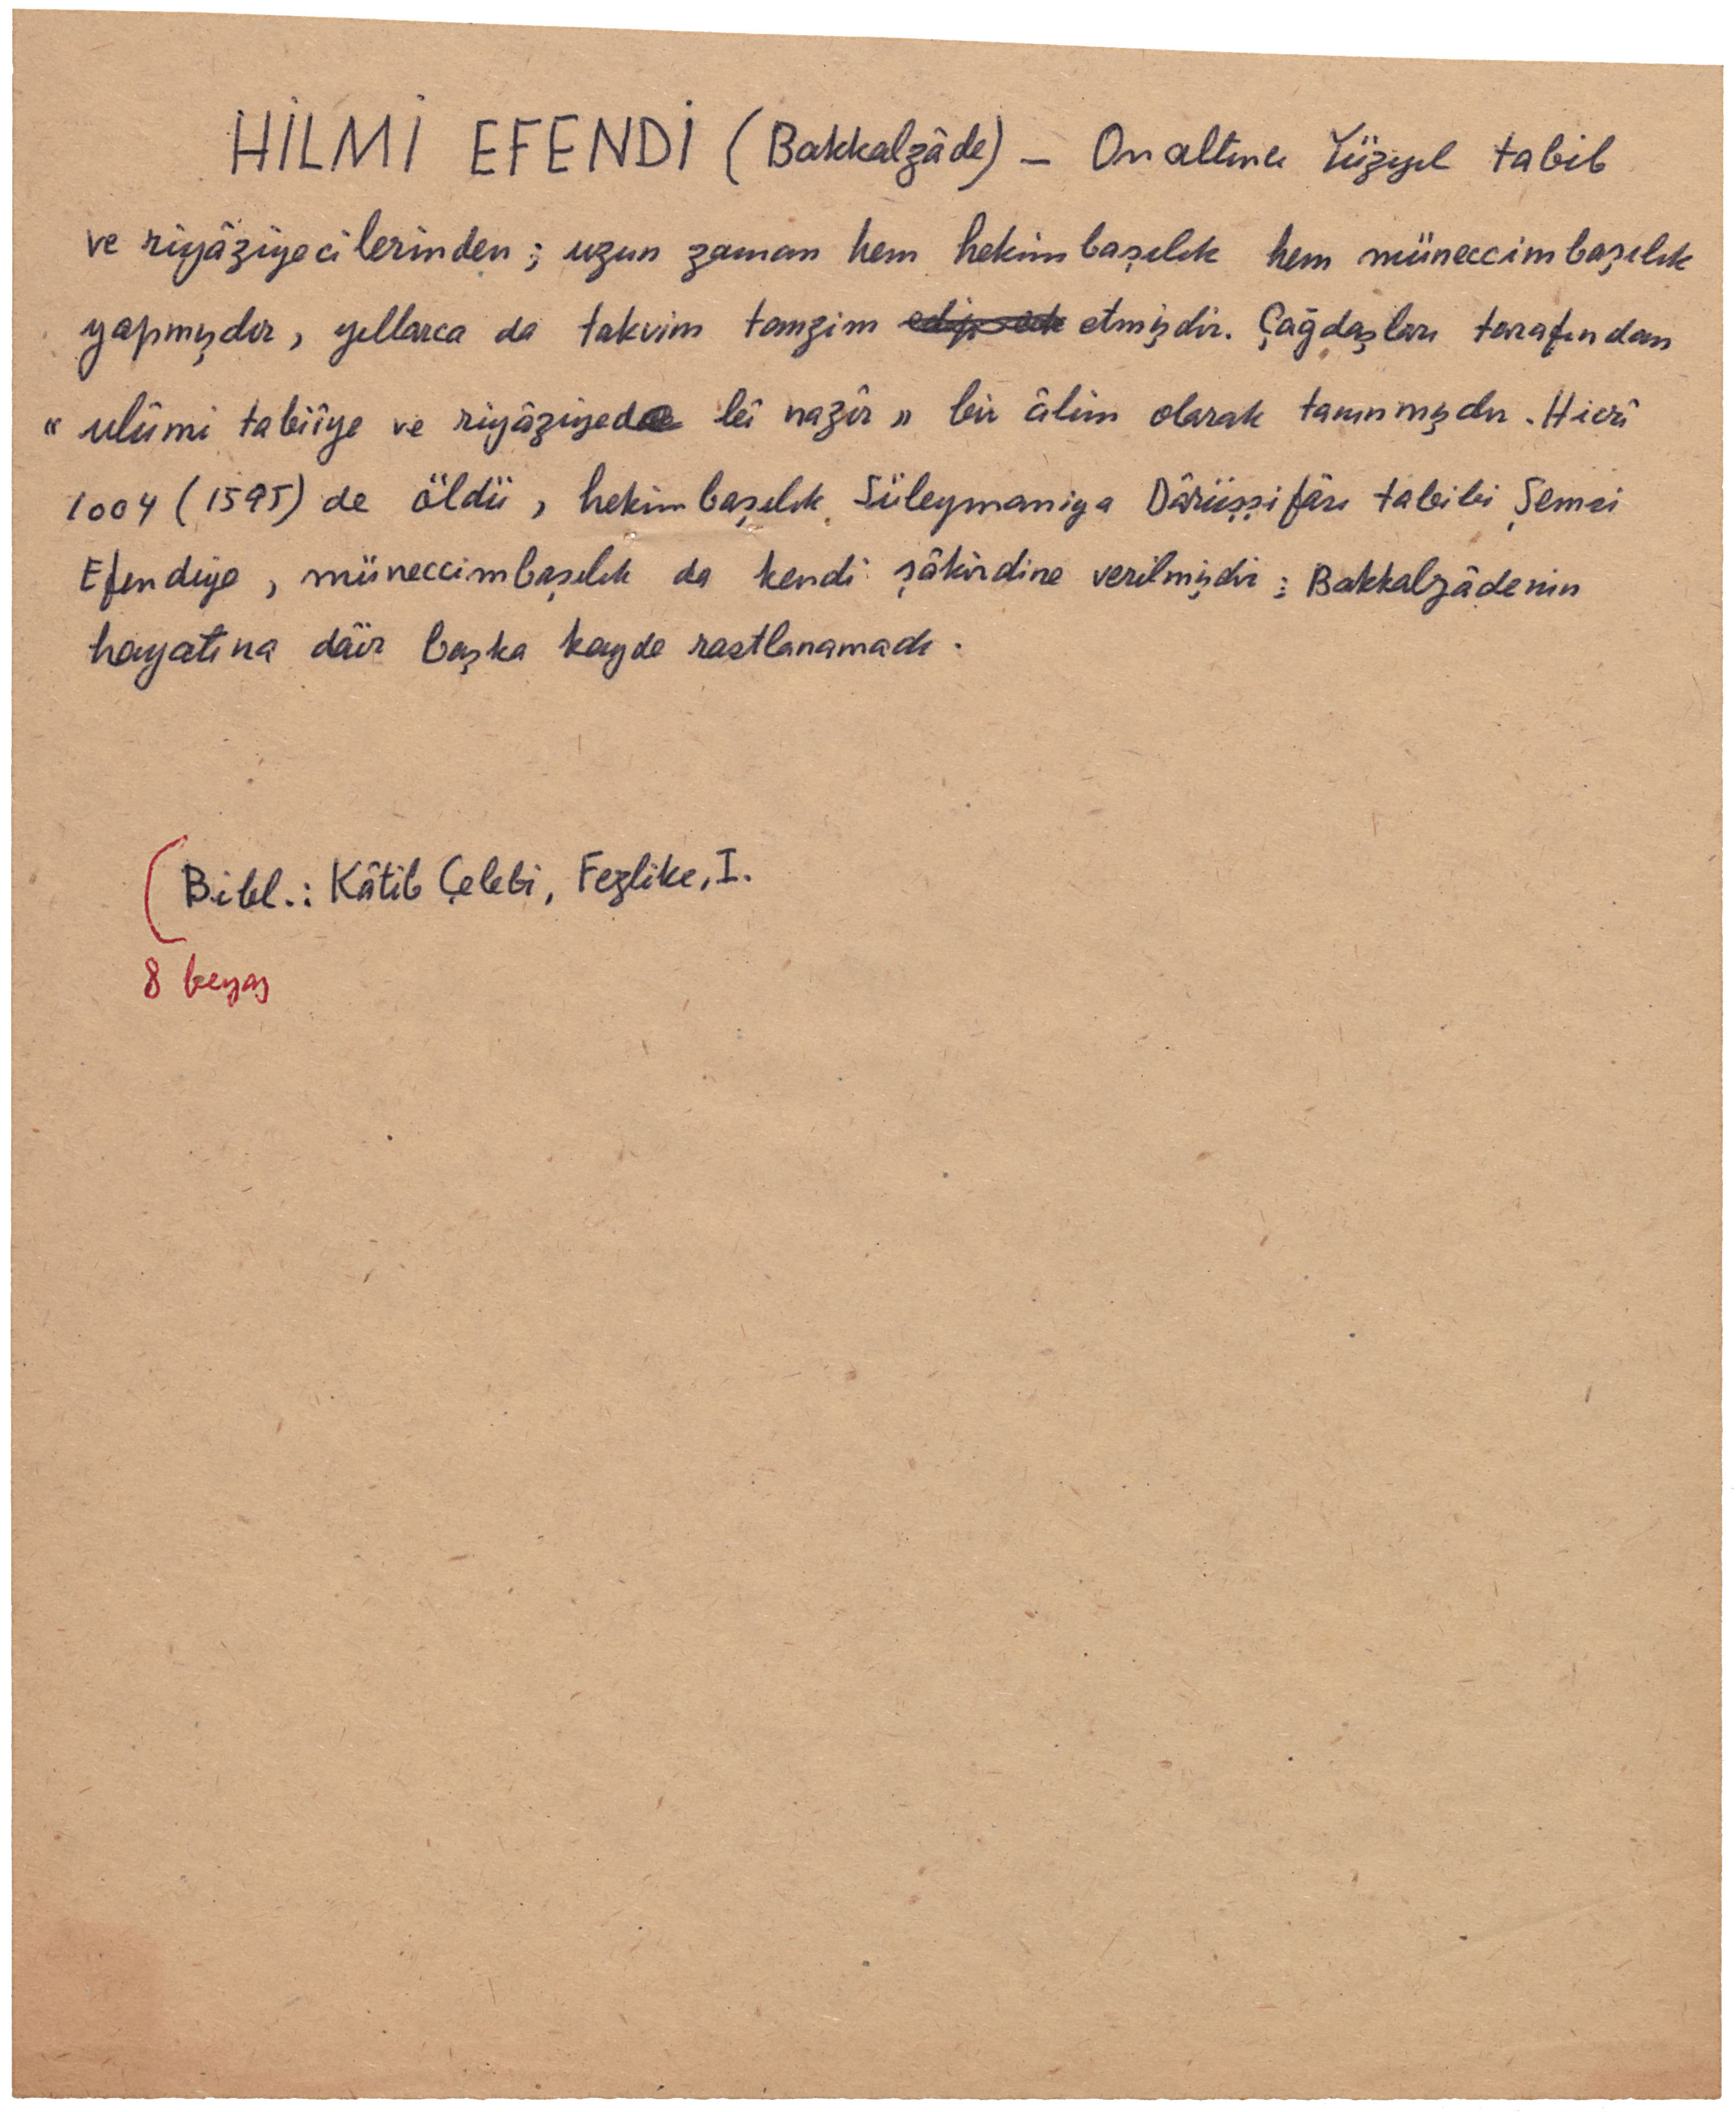 HİLMİ EFENDİ (Bakkalzâde) – Onaltıncı Yüzyıl tabib
ve riyâziyecilerinden; uzun zaman hem hekimbaşılık hem müneccimbaşılık
yapmışdır, yıllarca da takvim tanzim etmişdir. Çağdaşları tarafından
"ulûmi tabiîye ve riyâziyede bî nazîr" bir âlim olarak tanınmışdır. Hicrî
1004 (1595) de öldü, hekimbaşılık Süleymaniye Dârüşşifâsı tabibi Şemsi
Efendiye, müneccimbaşılık da kendi şâkirdine verilmişdir; Bakkalzâdenin
hayatına dâir başka kayde rastlanamadı.
Bibl.: Kâtib Çelebi, Fezlike, I.
8 beyaz